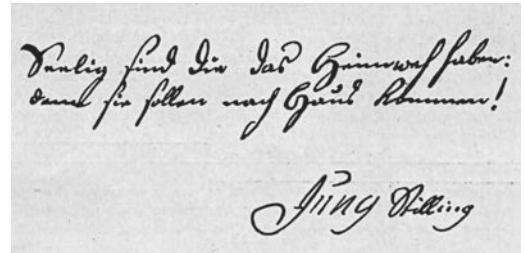 Seelig sind die das Heimweh haben:
denn sie sollen nach Haus kommen!
Jung Stilling